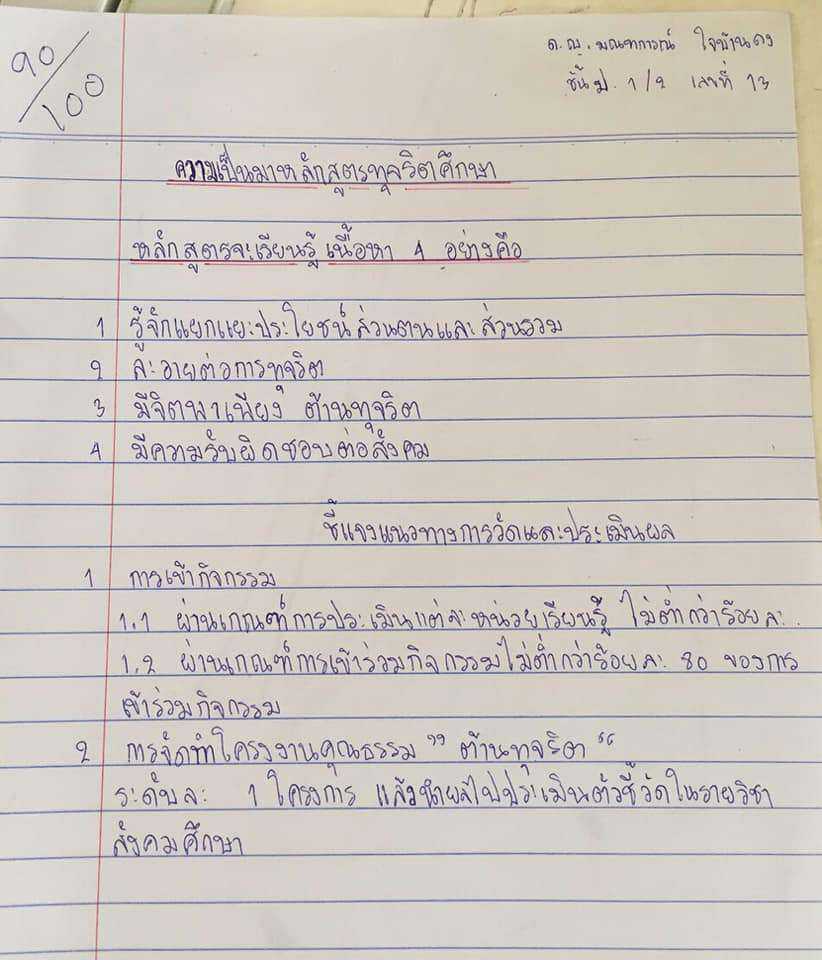 90/100
ด.ญ. มณฑการณ์ ใจบ้านดง
ชั้น ป. 1/2 เลขที่ 13
ความเป็นมาหลักสูตรทุจริตศึกษา
หลักสูตรจะเรียนรู้ เนื้อหา 4 อย่างคือ
1 รู้จักแยกแยะประโยชน์ส่วนตนและส่วนรวม
2 ละอายต่อการทุจริต
3 มีจิตพาเพียง ต้านทุจริต
4 มีความรับผิดชอบต่อสังคม
ชี้แจงแนวทางการวัดและประเมินผล
1 การเข้ากิจกรรม
1.1 ผ่านเกณฑ์การประเมินแต่ละหน่วยเรียนรู้ ไม่ต่ำกว่าร้อยละ..
1.2 ผ่านเกณฑ์การเข้าร่วมกิจกรรมไม่ต่ำกว่าร้อยละ 80 ของการ
เข้าร่วมกิจกรรม
2 การจัดทำโครงงานคุณธรรม " ต้านทุจริต "
ระดับละ 1 โครงการ แล้วนำผลไปประเมินตัวชี้วัดในรายวิชา
สังคมศึกษา